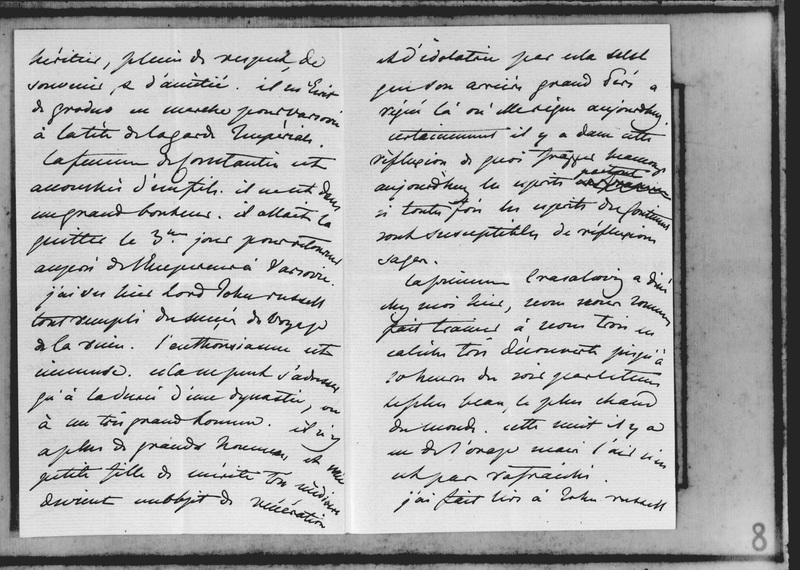 héritier, plein de respect, de
souvenir, & d'amitié. il en était
de grodno en marche pour varsovie
à la tête de la garde Impériale.
La femme de Constantin est
accouchée d'un fils. il en est dans
un grand bonheur. il allait la
quitter le 3me jour pour retourner
auprès de l'Empereur à Varsovie.
j'ai vu hier Lord John russell
tout rempli du succès du voyage
de la reine. l'enthousiasme est
immense. cela ne peut s'adresser
qu'à la durée d'une dynastie, ou
à un très grand homme. il n'y
a plus de grands hommes, et une
petite fille de mérite très médiocre
devient un objet de vénération
et d'idolatrie par cela seul
que son arrière grand père a
régné là où elle règne aujourd'hui.
certainement il y a dans cette
réflexion de quoi frapper beaucoup
aujourd'hui les esprits partout
si toutes fois les esprits du continent
sont susceptibles de réflexions
sages.
La princesse Crasalcovy a diné
chez moi hier, nous nous sommes
fait trainer à nous trois en
calèche très découverte jusqu'à
10 heures du soir par le tems
le plus beau, le plus chaud
du monde. cette nuit il y a
eu de l'orage mais l'air n'en
est pas rafraichi.
j'ai fait lire à John russell
8